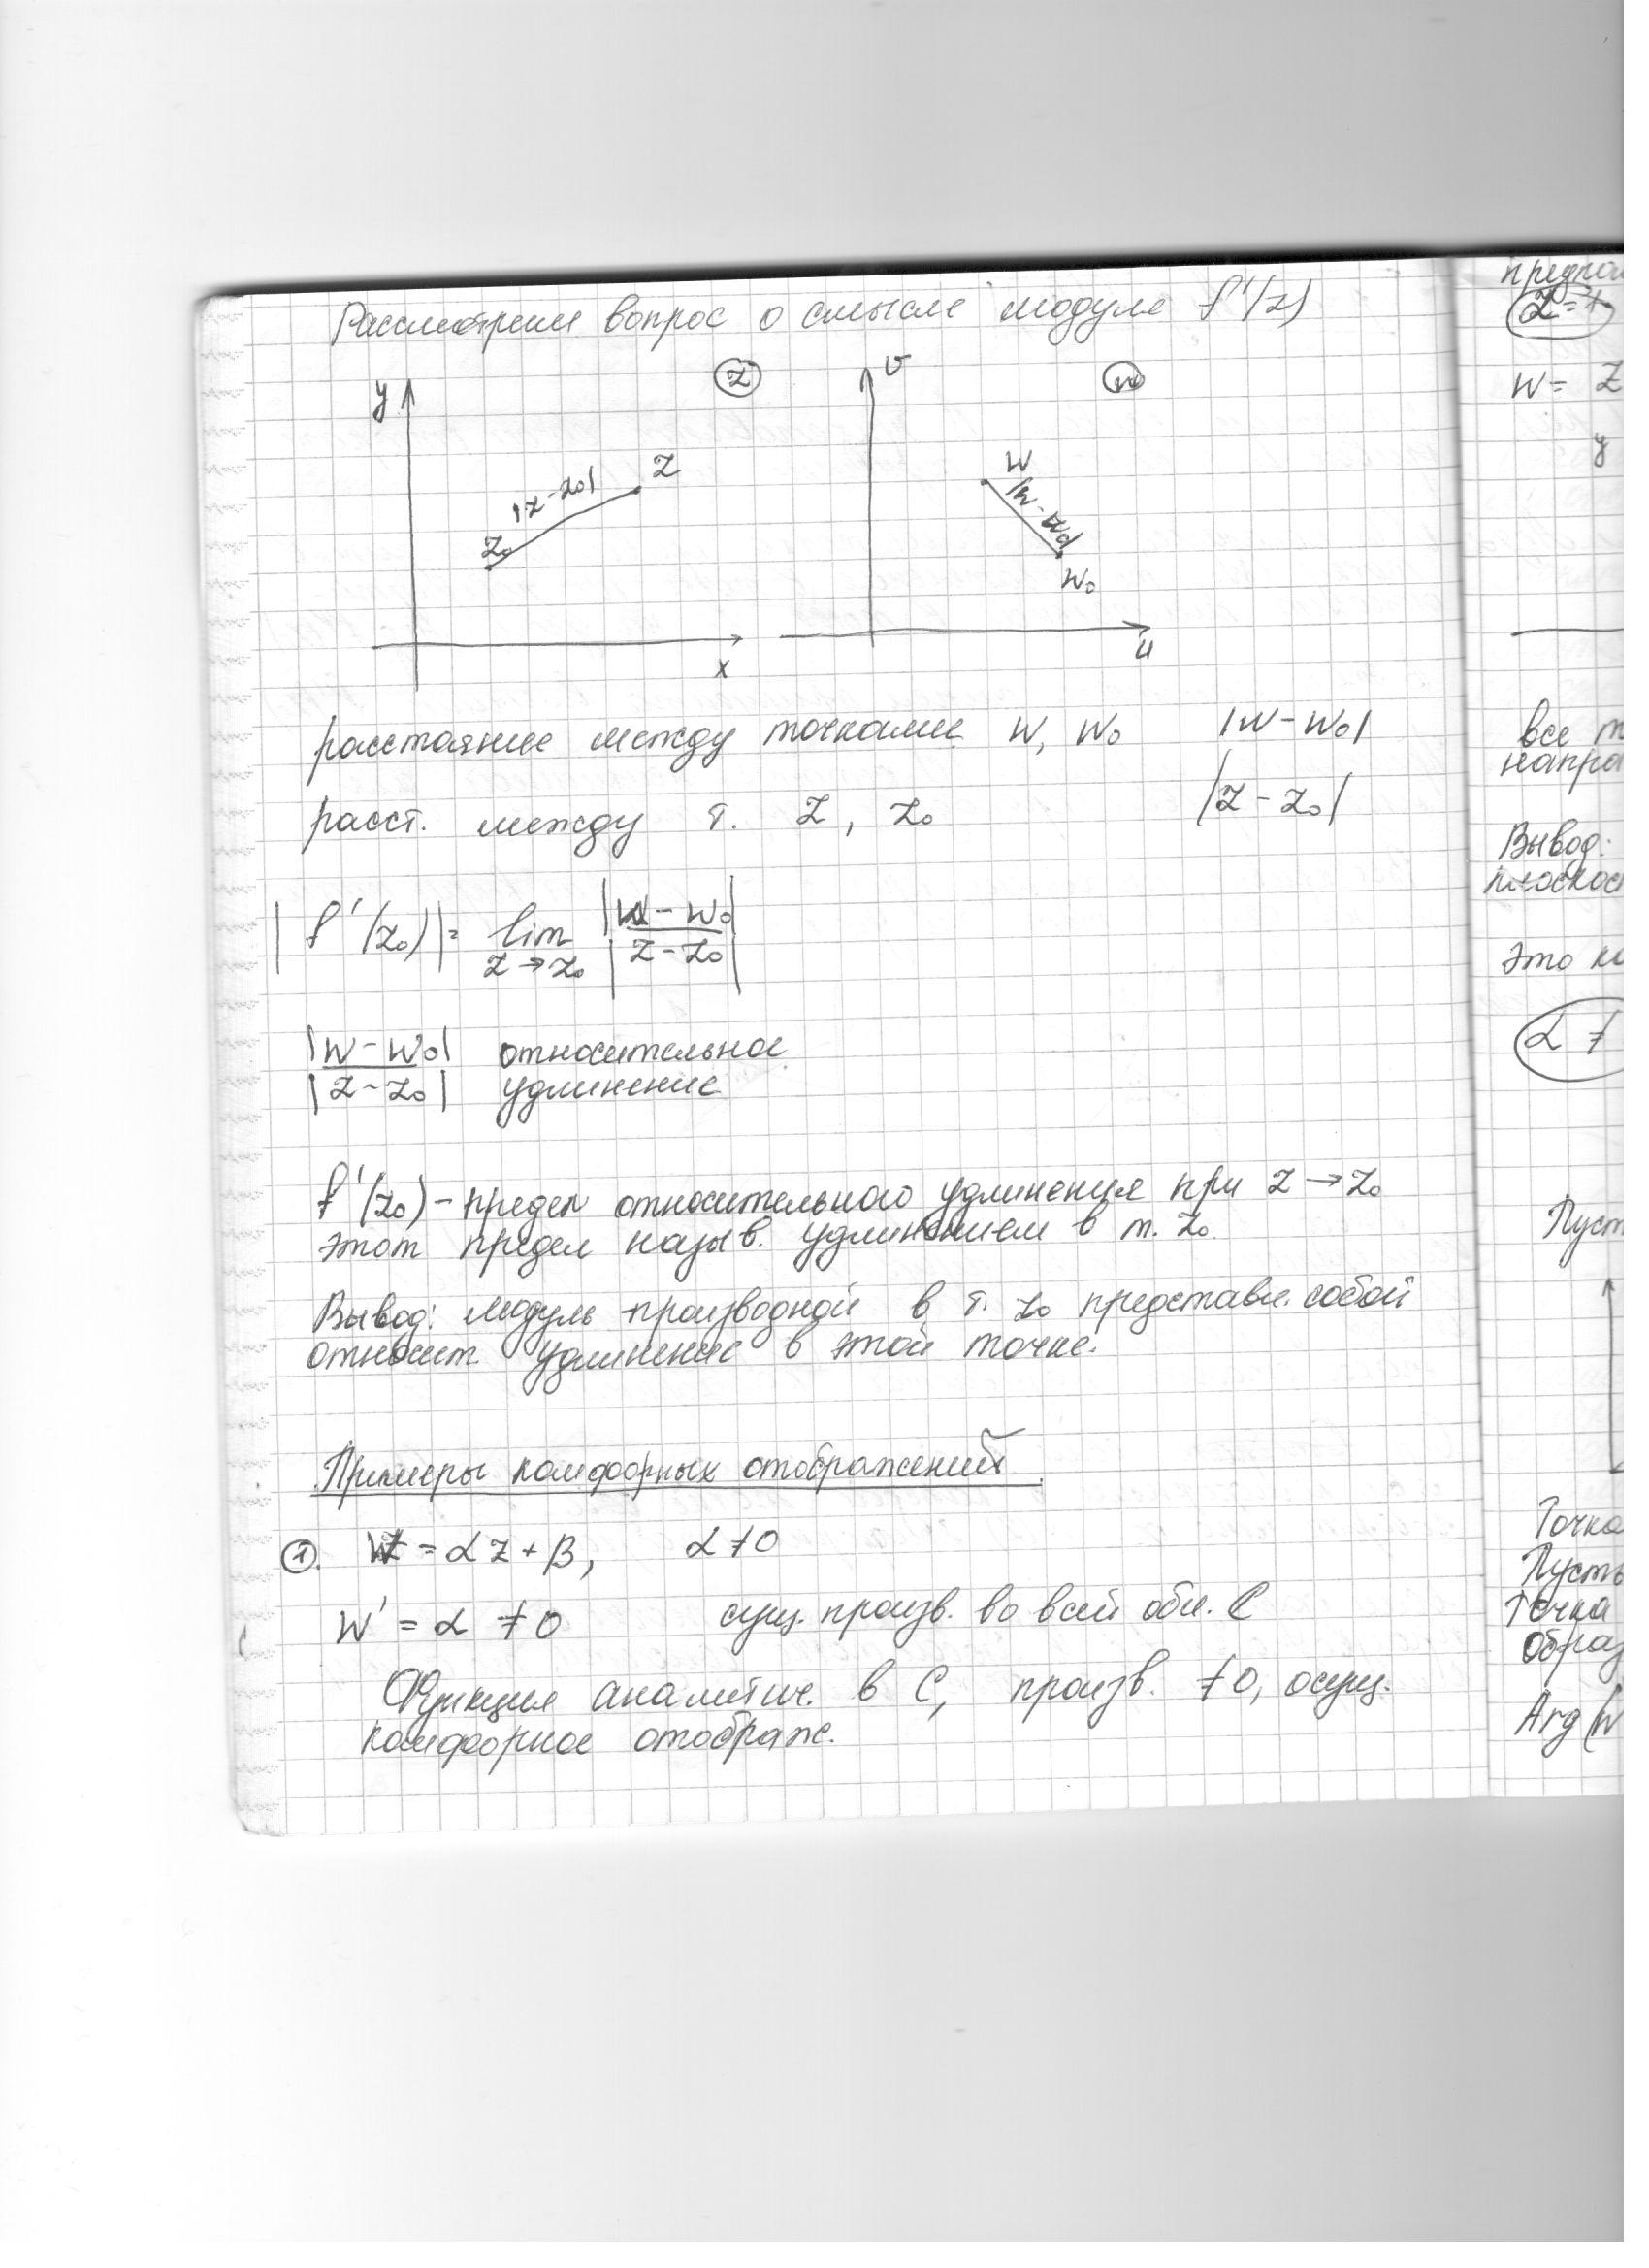 Рассмотрим вопрос о смысле модуля f'(z)
y
z
v
w
|z-z₀|
z
z₀
x
w
|w-w₀|
w₀
u
расстояние между точками w, w₀ |w-w₀|
расст. между т. z, z₀ |z-z₀|
|f'(z₀)|= lim |w-w₀|
z→z₀ |z-z₀|
|w-w₀| относительное
|z-z₀| удлинение
f'(z₀) - предел относительного удлиненния при z→z₀
этот предел назыв. удлинением в т. z₀
Вывод: модуль производной в т. z₀ представл. собой
относит. удлинение в этой точке.
Примеры комформных отображений
①. w = αz+β, α≠0
w' = α ≠0 сущ. произв. во всей обл. C
Функция аналитич. в C, произв. ≠0, осущ.
комформное отображ.
z=
w= z
y
все
Вывод:
это
α ≠
Точка
Пусть
точка
образ
Arg(w